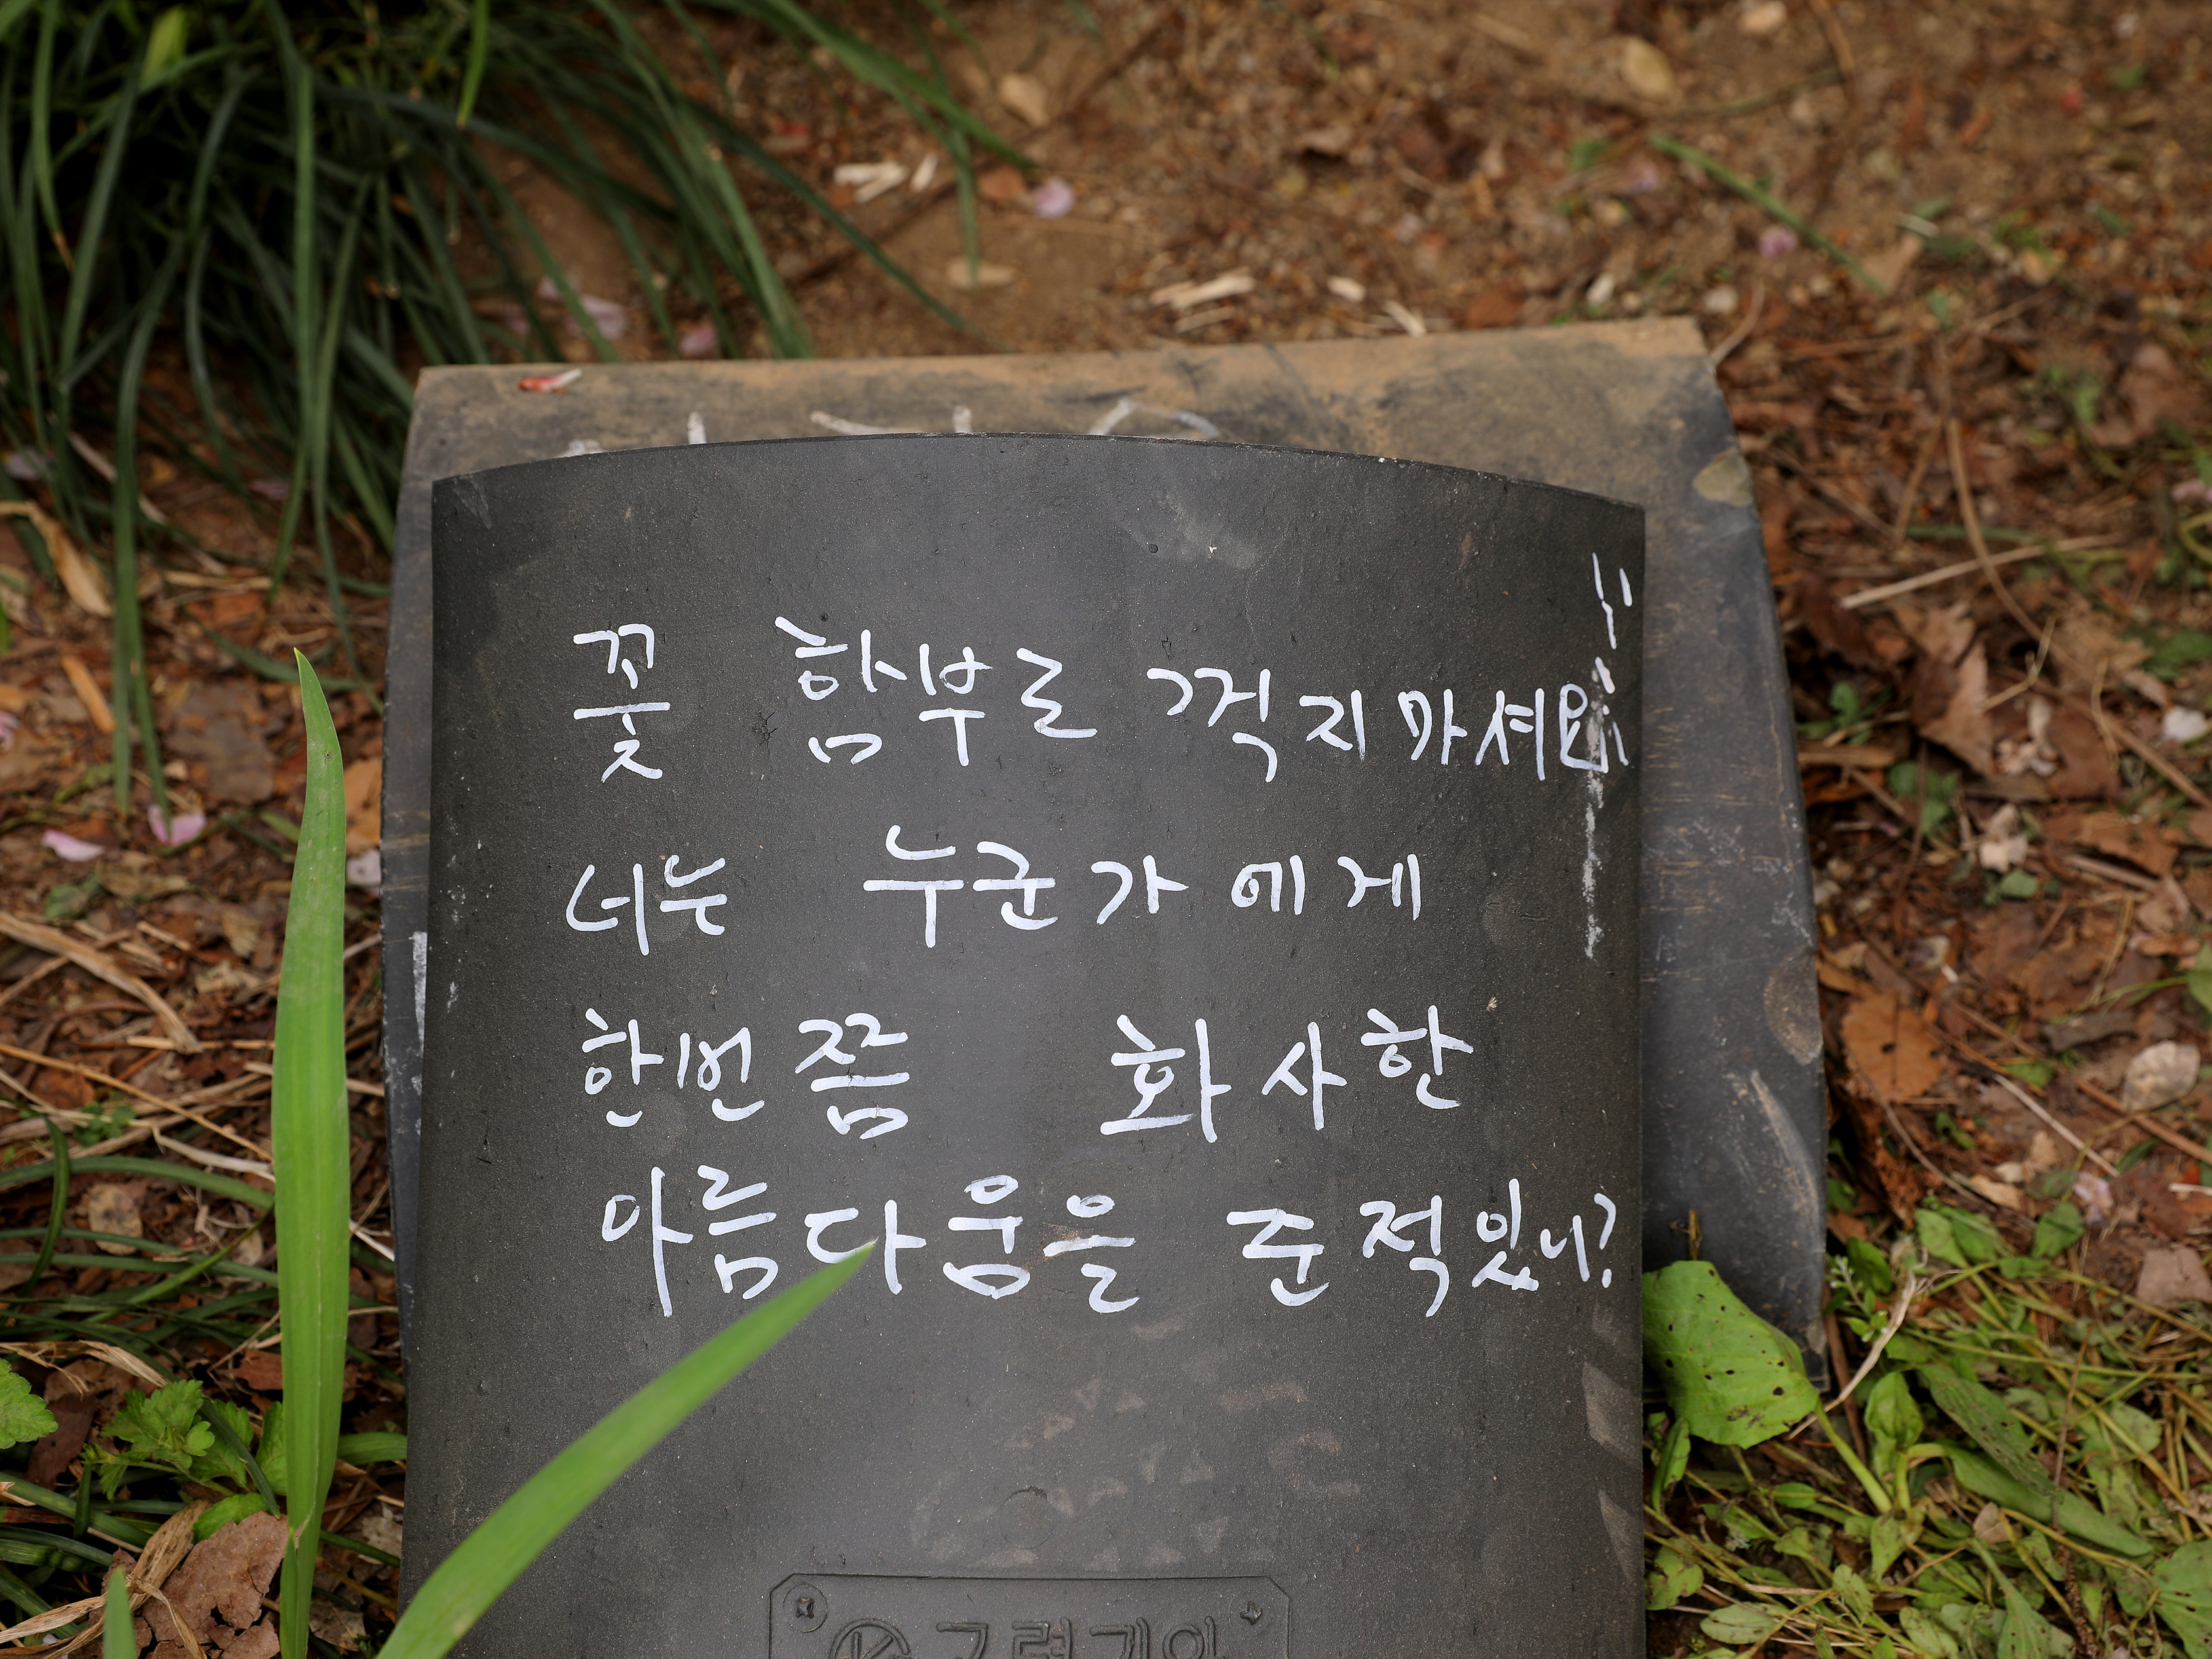 꽃 함부로 꺽지마셔요!!
너는 누군가에게
한번쯤 화사한
아름다움을 준적있니?
고령기와